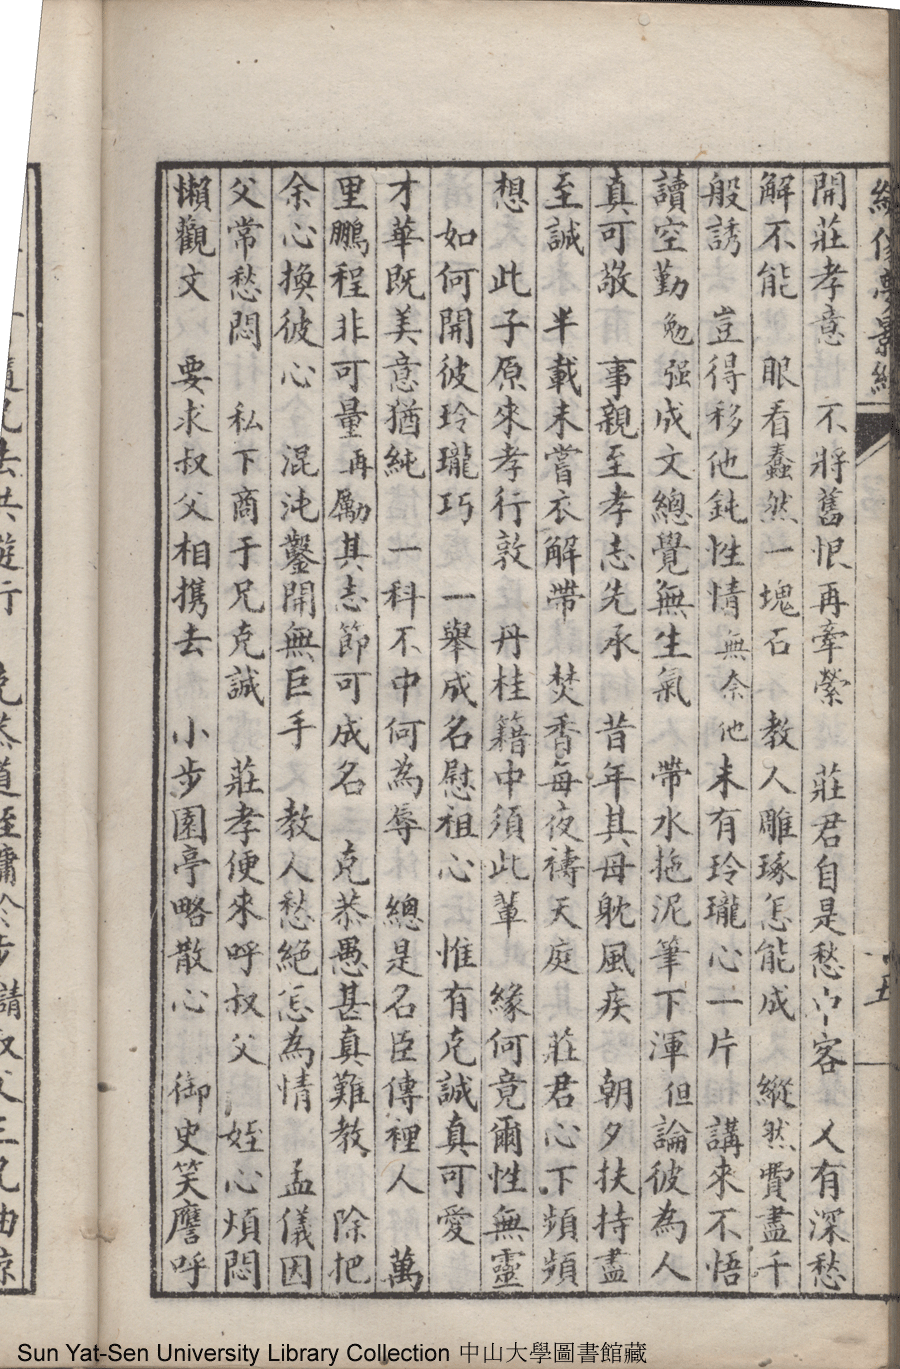 繡像夢影緣
十五
開莊孝意 不將舊恨再牽縈 莊君自是愁中客 又有深愁
解不能 眼看蠢然一塊石 教人雕琢怎能成 縱然費盡千
般誘 豈得移他鈍性情 無奈他未有玲瓏心一片 講來不悟
讀空勤 勉强成文總覺無生氣 帶水拖泥筆下渾 但論彼為人
真可敬 事親至孝志先承 昔年其母躭風疾 朝夕扶持盡
至誠 半載未嘗衣解帶 焚香每夜禱天庭 莊君心下頻頻
想 此子原來孝行敦 丹桂籍中須此輩 緣何竟爾性無靈
如何開彼玲瓏巧 一舉成名慰祖心 惟有克誠真可愛
才華既美意猶純 一科不中何為辱 總是名臣傳裡人 萬
里鵬程非可量 再勵其志節可成名 克恭愚甚真難教 除把
余心換彼心 混沌鑿開無巨手 教人愁絕怎為情 孟儀因
父常愁悶 私下商于兄克誠 莊孝便來呼叔父 姪心煩悶
懶觀文 要求叔父相携去 小步園亭略散心 御史笑譍呼
隨兄去共遊行 克恭道姪慵於步 請叔父三兄由